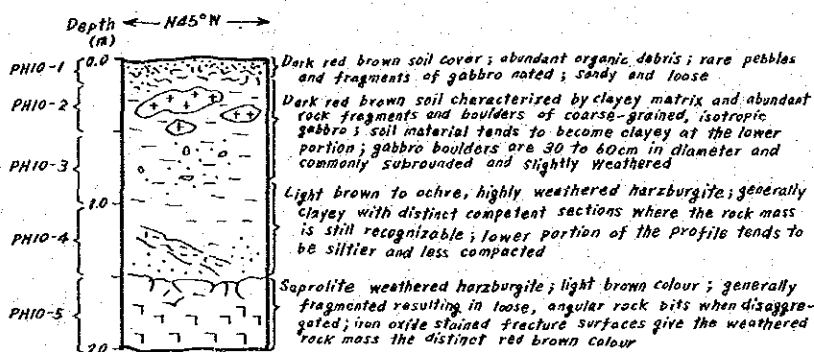 Depth
(m)
N45°W
0.0
1.0
2.0
PH10-1
PH10-2
PH10-3
PH10-4
PH10-5
Dark red brown soil cover; abundant organic debris; rare pebbles
and fragments of gabbro noted; sandy and loose
Dark red brown soil characterized by clayey matrix and abundant
rock fragments and boulders of coarse-grained, isotropic
gabbro; soil material tends to become clayey at the lower
portion; gabbro boulders are 30 to 60cm in diameter and
commonly subrounded and slightly weathered
Light brown to ochre, highly weathered harzburgite; generally
clayey with distinct competent sections where the rock mass
is still recognizable; lower portion of the profile tends to
be siltier and less compacted
Saprolite weathered harzburgite; light brown colour; generally
fragmented resulting in loose, angular rock bits when disaggre-
gated; iron oxide stained fracture surfaces give the weathered
rock mass the distinct red brown colour